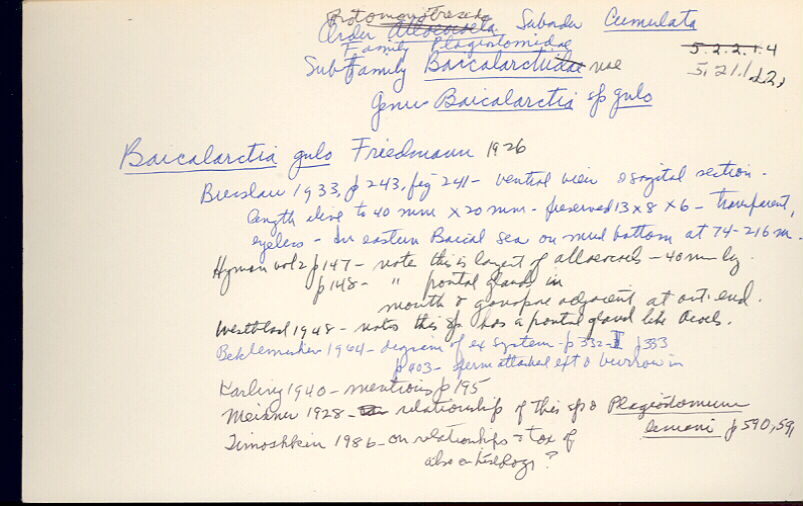 Order Alloeocoela Suborder Cumulata
Family Plagiostomidae
5.2.2.1.4
SubFamily Baicalarctiidae nae
5.21.1.2.)
Genus Baicalarctia sp gulo
Baicalarctia gulo Friedmann 1926
Breslau 1933, p 243, fig 241 - ventral view & sagital section -
length alive to 40 mm x 20 mm - preserved 13 x 8 x 6 - transparent,
eyeless - In eastern Baical Sea on mud bottom at 74-216 m.
Hyman vol 2 p 147 - note this is largest of alloeocoels - 40 mm lg
p 148 - " frontal glands in
mouth & gonopore adjacent at ant. end.
Westblad 1948 - notes this sp has a frontal gland like Acoels.
Beklemischev 1964 - diagram of ex system - p 332 - II p 333
p 403 - sperm attached ext & burrow in
Karling 1940 - mentions p 195
Meixner 1928 - relationship of this sp & Plagiostomum
lemani p 590, 591
Timoshkin 1986 - on relationships & tax of
also on histology?